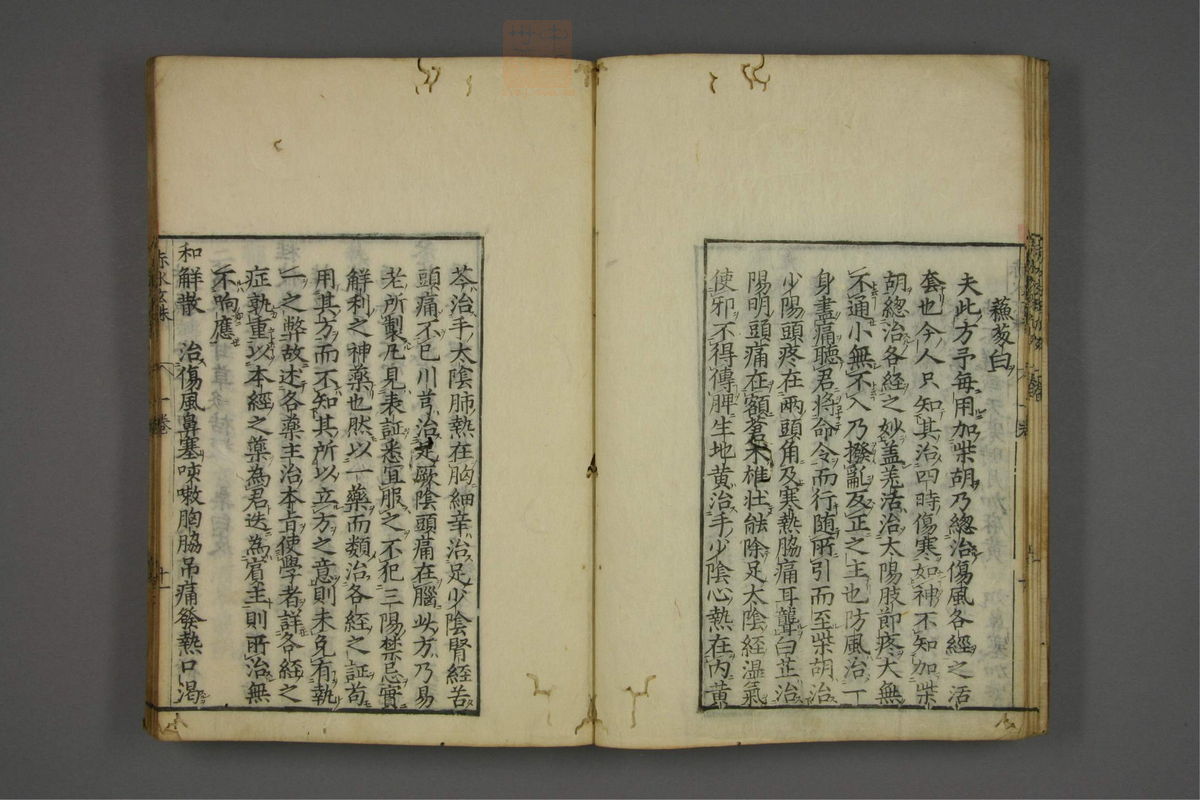 蘓葱白
夫此方予每用加柴胡乃總治傷風各經之活
套也今人只知其治四時傷寒如神不知加柴
胡總治各經之妙盖羌活治太陽肢節疼大無
不通小無不入乃撥亂反正之主也防風治一
身盡痛聽君將命令而行随所引而至柴胡治
少陽頭疼在兩頭角及寒熱脇痛耳聾白芷治
陽明頭痛在額蒼术雄壮能除足太陰經濕氣
使邪不得傳脾生地黄治手少陰心熱在内黄
芩治手太陰肺熱在胸細辛治足少陰腎經苦
頭痛不已川芎治足厥陰頭痛在腦此方乃易
老所製凢見表証悉宜服之不犯三陽禁忌實
解利之神藥也然以一藥而類治各經之証苟
用其方而不知其所以立方之意則未免有執
一之弊故述各藥主治本旨使學者詳各經之
症孰重以本經之藥為君迭為賓主則所治無
不响應
和解散 治傷風鼻塞咳嗽胸脇吊痛發熱口渴
赤水玄珠 一卷 十一